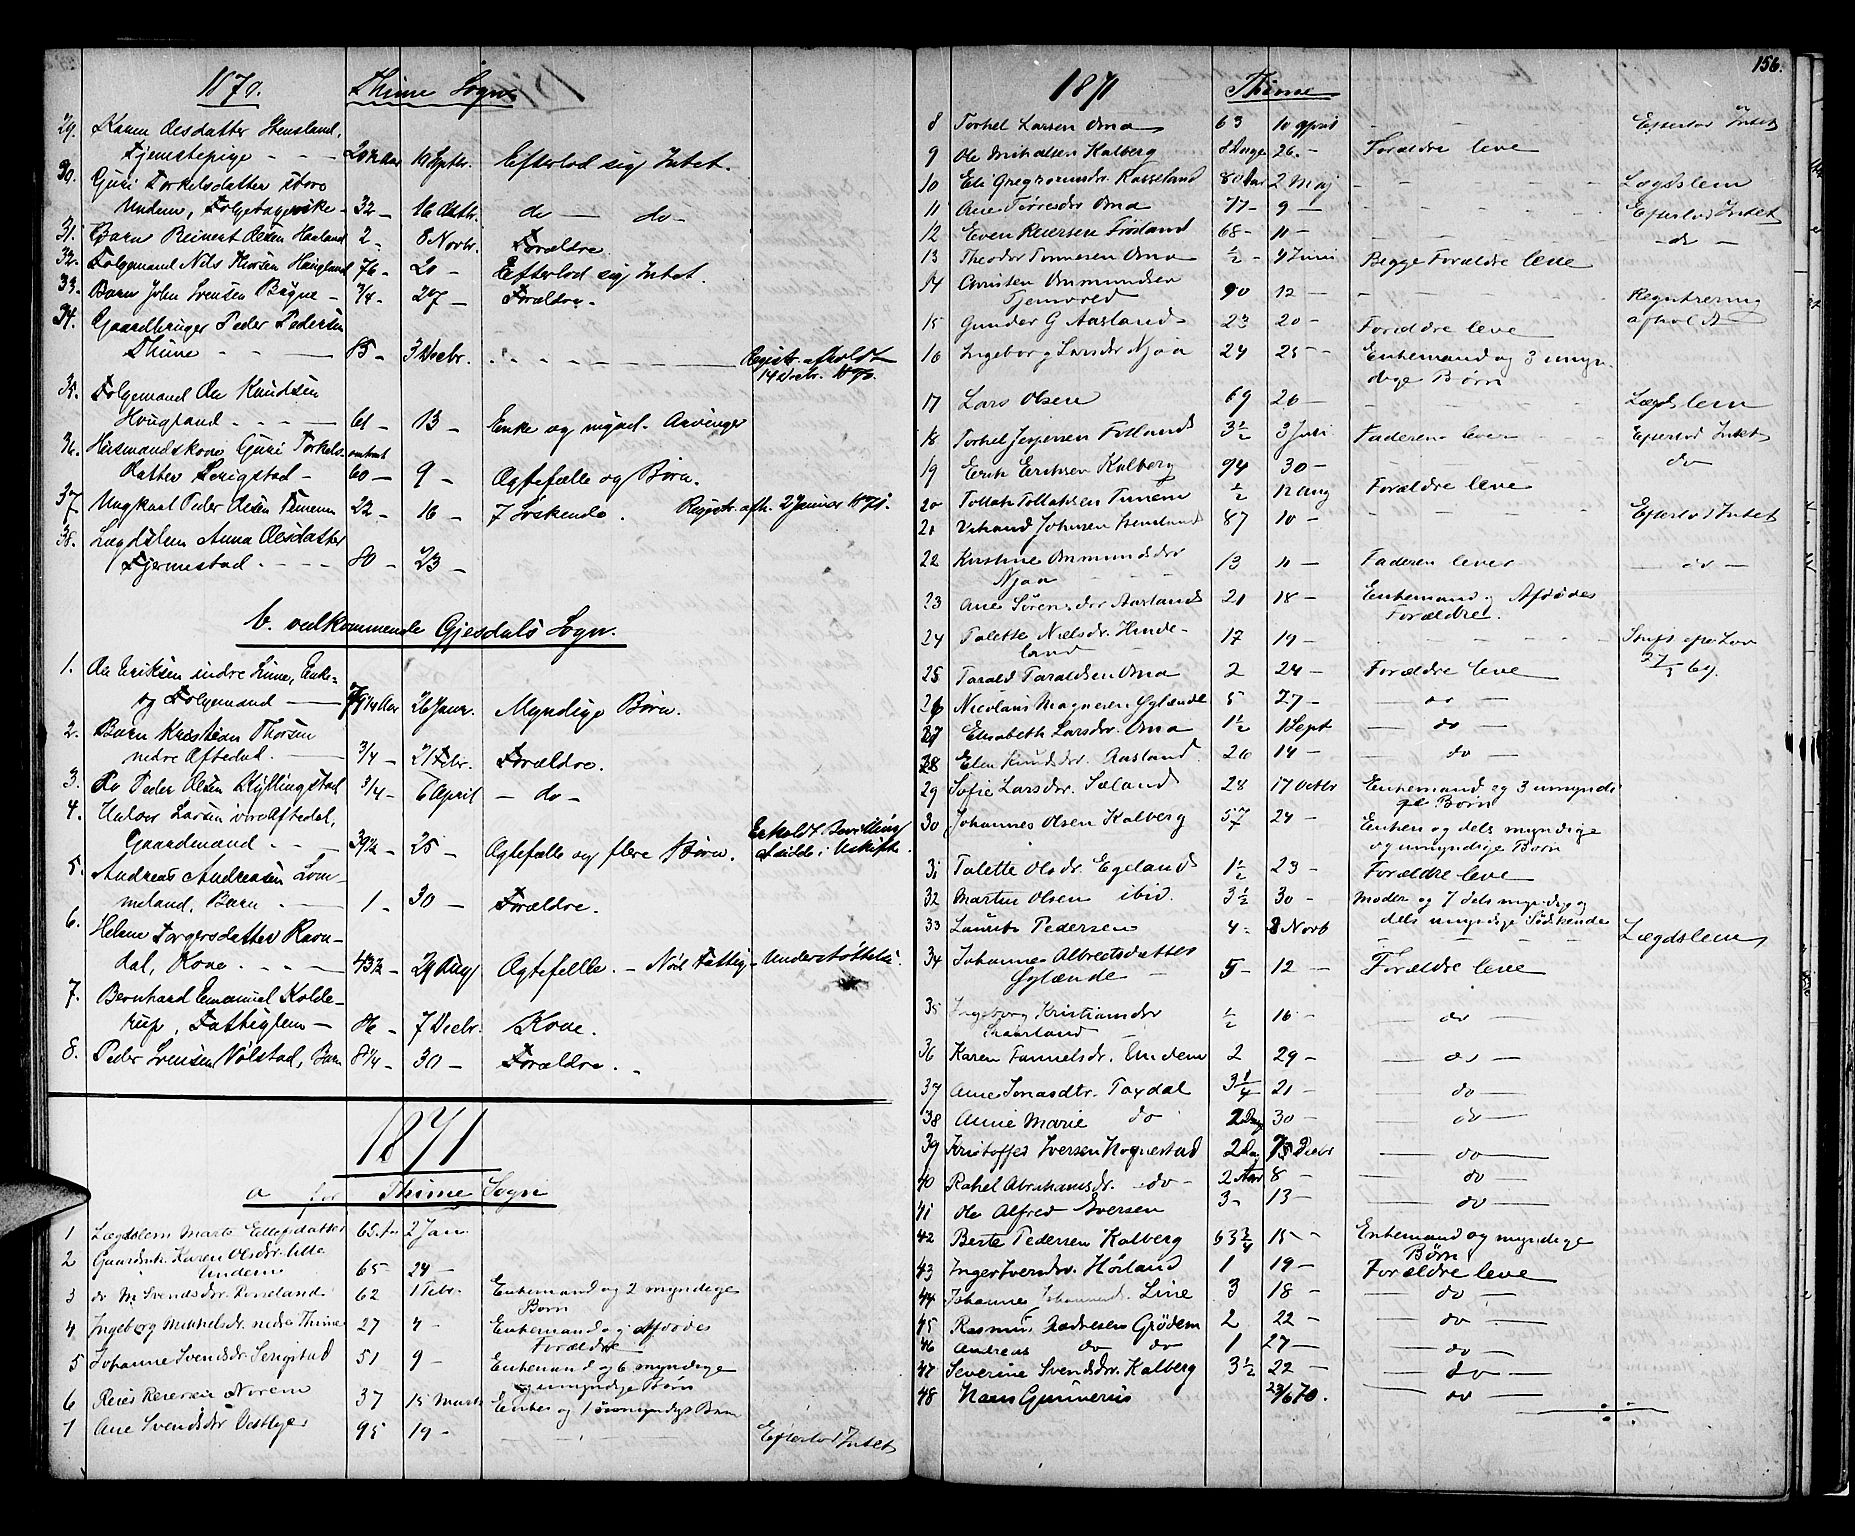 1870. Thime Sogn
29. Karen Olsdatter Hensland,
Tjenestepige - - - 20½ Aar 11 Septbr. Efterlod sig Intet.
30. Guri Torkelsdatter store
Undem, Folgetagerske - 32 - 16 Octbr. do — do -
31. Barn Reinert Olsen Haaland 2 - 8 Novbr. Forældre
32. Folgemand Nils Thorsen Haugland 76 - 20 - Efterlod sig Intet.
33. Barn John Svensen Bryne - 3/4 - 27 - Forældre -
34. Gaardbruger Peder Pedersen
Thime - - — 85 - 3 Decbr. Registr. afholdt
14 Decbr. 1870.
35. Folgemand Ole Knudsen
Hougland - - - - 61 - 13 - Enke og mynd. Arvinger
36. Husmandskone Guri Torkels- omtrent
datter Serigstad - 60 - 9 - Ægtefælle og Børn.
37. Ungkarl Peder Olsen Tunem 22 - 16 - 7 Søskende. Registr. afh. 2 Januar 1871.
38. Lægdslem Anna Olsdatter
Fjermestad - - - - 80 - 23 -
b. vedkommende Gjesdals Sogn.
1. Ole Eriksen indre Lime, Enke-
og Folgemand — 79¼ Aar 26 Janr. Myndige Børn.
2. Barn Kristian Thorsen
nedre Aftedal. — 3/4 - 21 Febr. Forældre.
3. Do Peder Olsen Kyllingstad 3/4 - 6 April - do -
4. Halvor Larsen øvre Aftedal,
Gaardmand - - - 39½ - 25 - Ægtefælle og flere Børn.
5. Andreas Andreasen Lom-
meland, Barn - — 1 - 30 - Forældre.
6. Helene Torgersdatter Ravn-
dal, Kone - - - 43½ - 29 Aug Ægtefelle. - Nöd Fattig-Understøttelse.
7. Bernhard Emanuel Kolde-
rup, Fattiglem - 86 - 7 Decbr. Kone.
8. Peder Svensen Nölstad, Barn 8¼ - 30 - Forældre.
1871
a for Thime Sogn
1 Lægdslem Marta Ellefsdatter 65 2 Jan
2 Karen Olsdr. lille
Undem 65 24 -
3 do M. Svendsdr. Roseland 62 1 Febr. Enkemand og 2 myndige
Børn
4 Ingeborg Mikkelsdr. nedre Thime 27 4 - Enkemand og Afdødes
Forældre
5 Johanne Svendsdr. Serigstad 51 9 - Enkemand og 6 myndige
og umyndige Børn
6 Reier Reiersen Norem 37 15 Marts Enke og 1 umyndigt Barn
7 Ane Svendsdr Vestlye 95 19 - Efterlod Intet
156.
1871 Thime
8 Torkel Larsen Oma 63 10 April Efterlod Intet
9 Ole Mikalsen Kalberg 8 Dage 26. - Forældre leve
10 Eli Gregoriusdr. Rosseland 80 Aar 2 Maj Lægdslem
11 Ane Torresdr Oma 77 - 9 - Efterlod Intet
12 Even Reiersen Frøiland 68 - 11 - - do -
13 Theodor Tonnesen Oma ½ - 4 Juni Begge Forældre leve
14 Ommundsen
Tjemsvold 90 12 - Registrering
15 Gunder G Aasland 23 20 - Forældre leve afholdt
16 Ingeborg Larsdr Njaa 24 25 - Enkemand og 3 umyn-
dige Børn
17 Lars Olsen 69 26 - Lægdslem
18 Torkel Jørgensen Fotland 3½ 3 Juli Faderen lever Efterlod Intet
19 Erik Eriksen Kalberg 94 30 - do
20 Tollak Tollaksen Tunem ½ 12 Aug Forældre leve
21 Johnsen 87 10 - Efterlod Intet
22 Kirstine Ommundsdr
Njaa 13 11 - Faderen lever - do -
23 Ane Sörensdr Aasland 21 18 - Enkemand og Afdødes
Forældre.
24 Talette Nielsdr. Hinde-
land 17 19 -
27/5 69.
25 Tarald Taraldsen Oma 2 24 - Forældre leve
26 Nicolais Magnesen Gylænde 5 27 - - do -
27 Elisabeth Larsdr. Oma 1½ 1 Sept - do -
28 Elen Knudsdr. Aasland 26 14 - - do -
29 Sofie Larsdr. Sæland 28 17 Octbr Enkemand og 3 umyndi
ge Børn
30 Johannes Olsen Kalberg 57 24 - Enken og dels myndige
og umyndige Børn
31 Talette Olsdr. Egeland 1½ 23 - Forældre leve
32 Martin Olsen ibid. 3½ 30 - Moder og 7 dels myndig og
dels umyndige Sødskende
33 Pedersen 4 - 8 Novb Lægdslem
34 Johannes Albretsdatter
Gylænde 5 - 12 - Forældre leve
35 Ingeborg Kristiansdr
½ 16 - - do -
36 Karen Samuelsdr. Undem 2 29 - - do -
37 Ane Jonasdtr. Taxdal 3¼ 21 - - do -
38 Anne Marie do 2 Dag 30 - - do -
39 Kristoffer Iversen Hognestad 2 Da Decbr - do -
40 Rakel Abrahamsdr. - do - 2 Aar 8 - - do -
41 Ole Alfred Iversen 3 - 13 - - do -
42 Berte Pedersen Kalberg 63¾ 15 - Enkemand og myndige
Børn
43 Inger Iversdr. Hörland 1 19 - Forældre leve
44 Johannes Johannesd. Line 3 18 - - do -
45 Rasmus Andresen Grödem 2 22 - - do -
46 Andreas do do 1 27 - - do -
47 Severine Svendsdr. Kalberg 3½ 22 - - do -
48 Hans Gunnerius 23/6 70. - do -